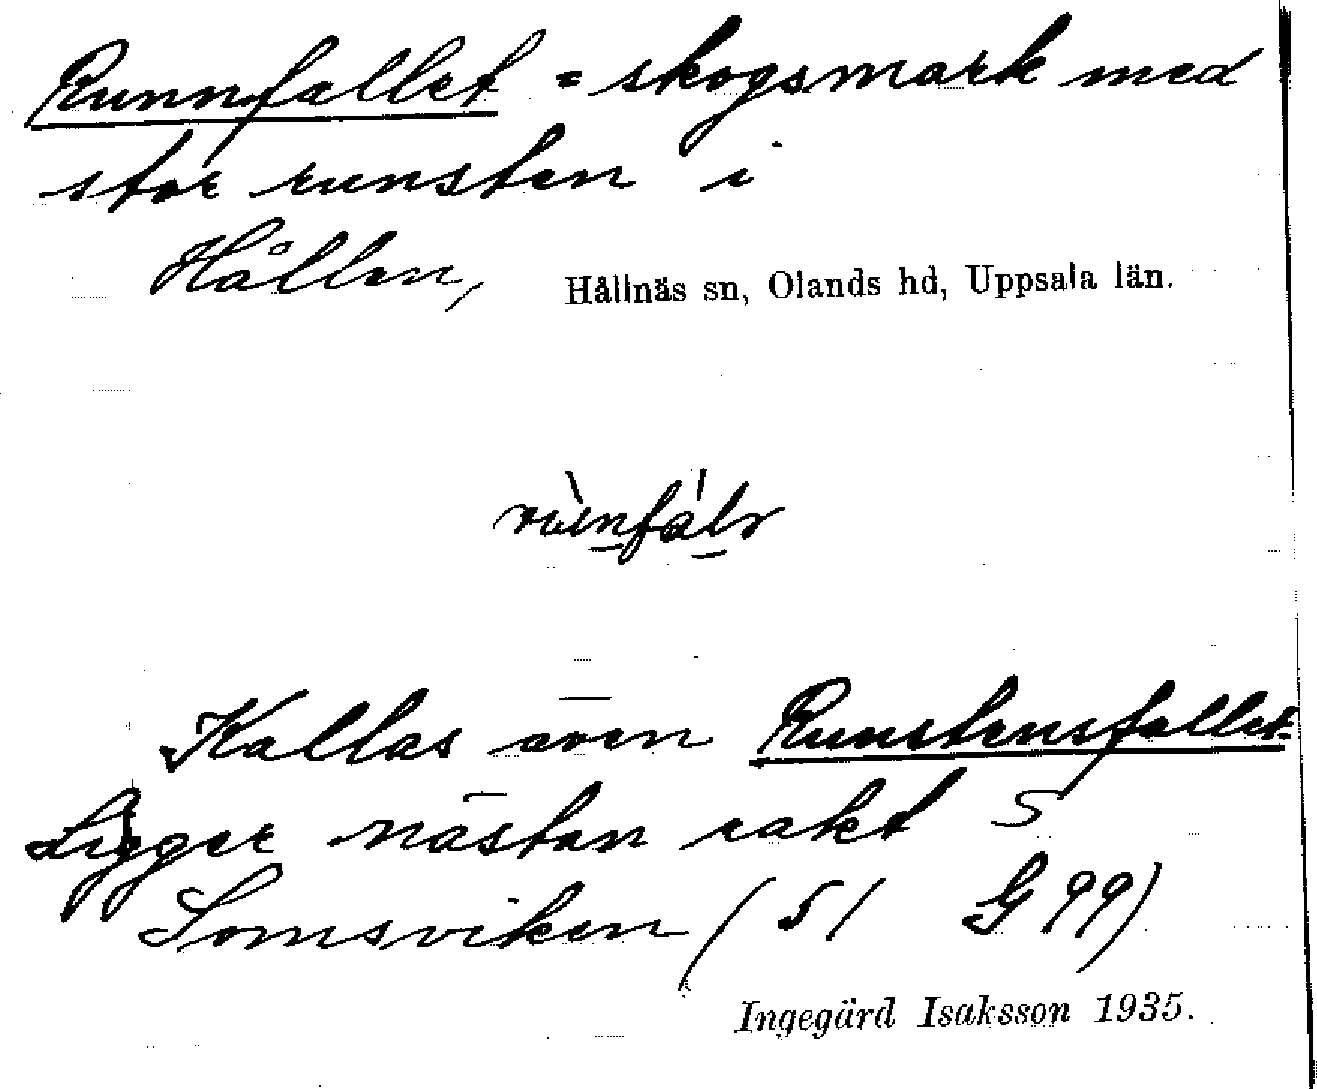 Runnfallet = skogsmark med
stor runsten i
Hållen, Hållnäs sn, Olands hd, Uppsala län.
Kallas även Runstensfallet.
Ligger nästan rakt S
Lomsviken (51 G 99)
Ingegärd Isaksson 1935.